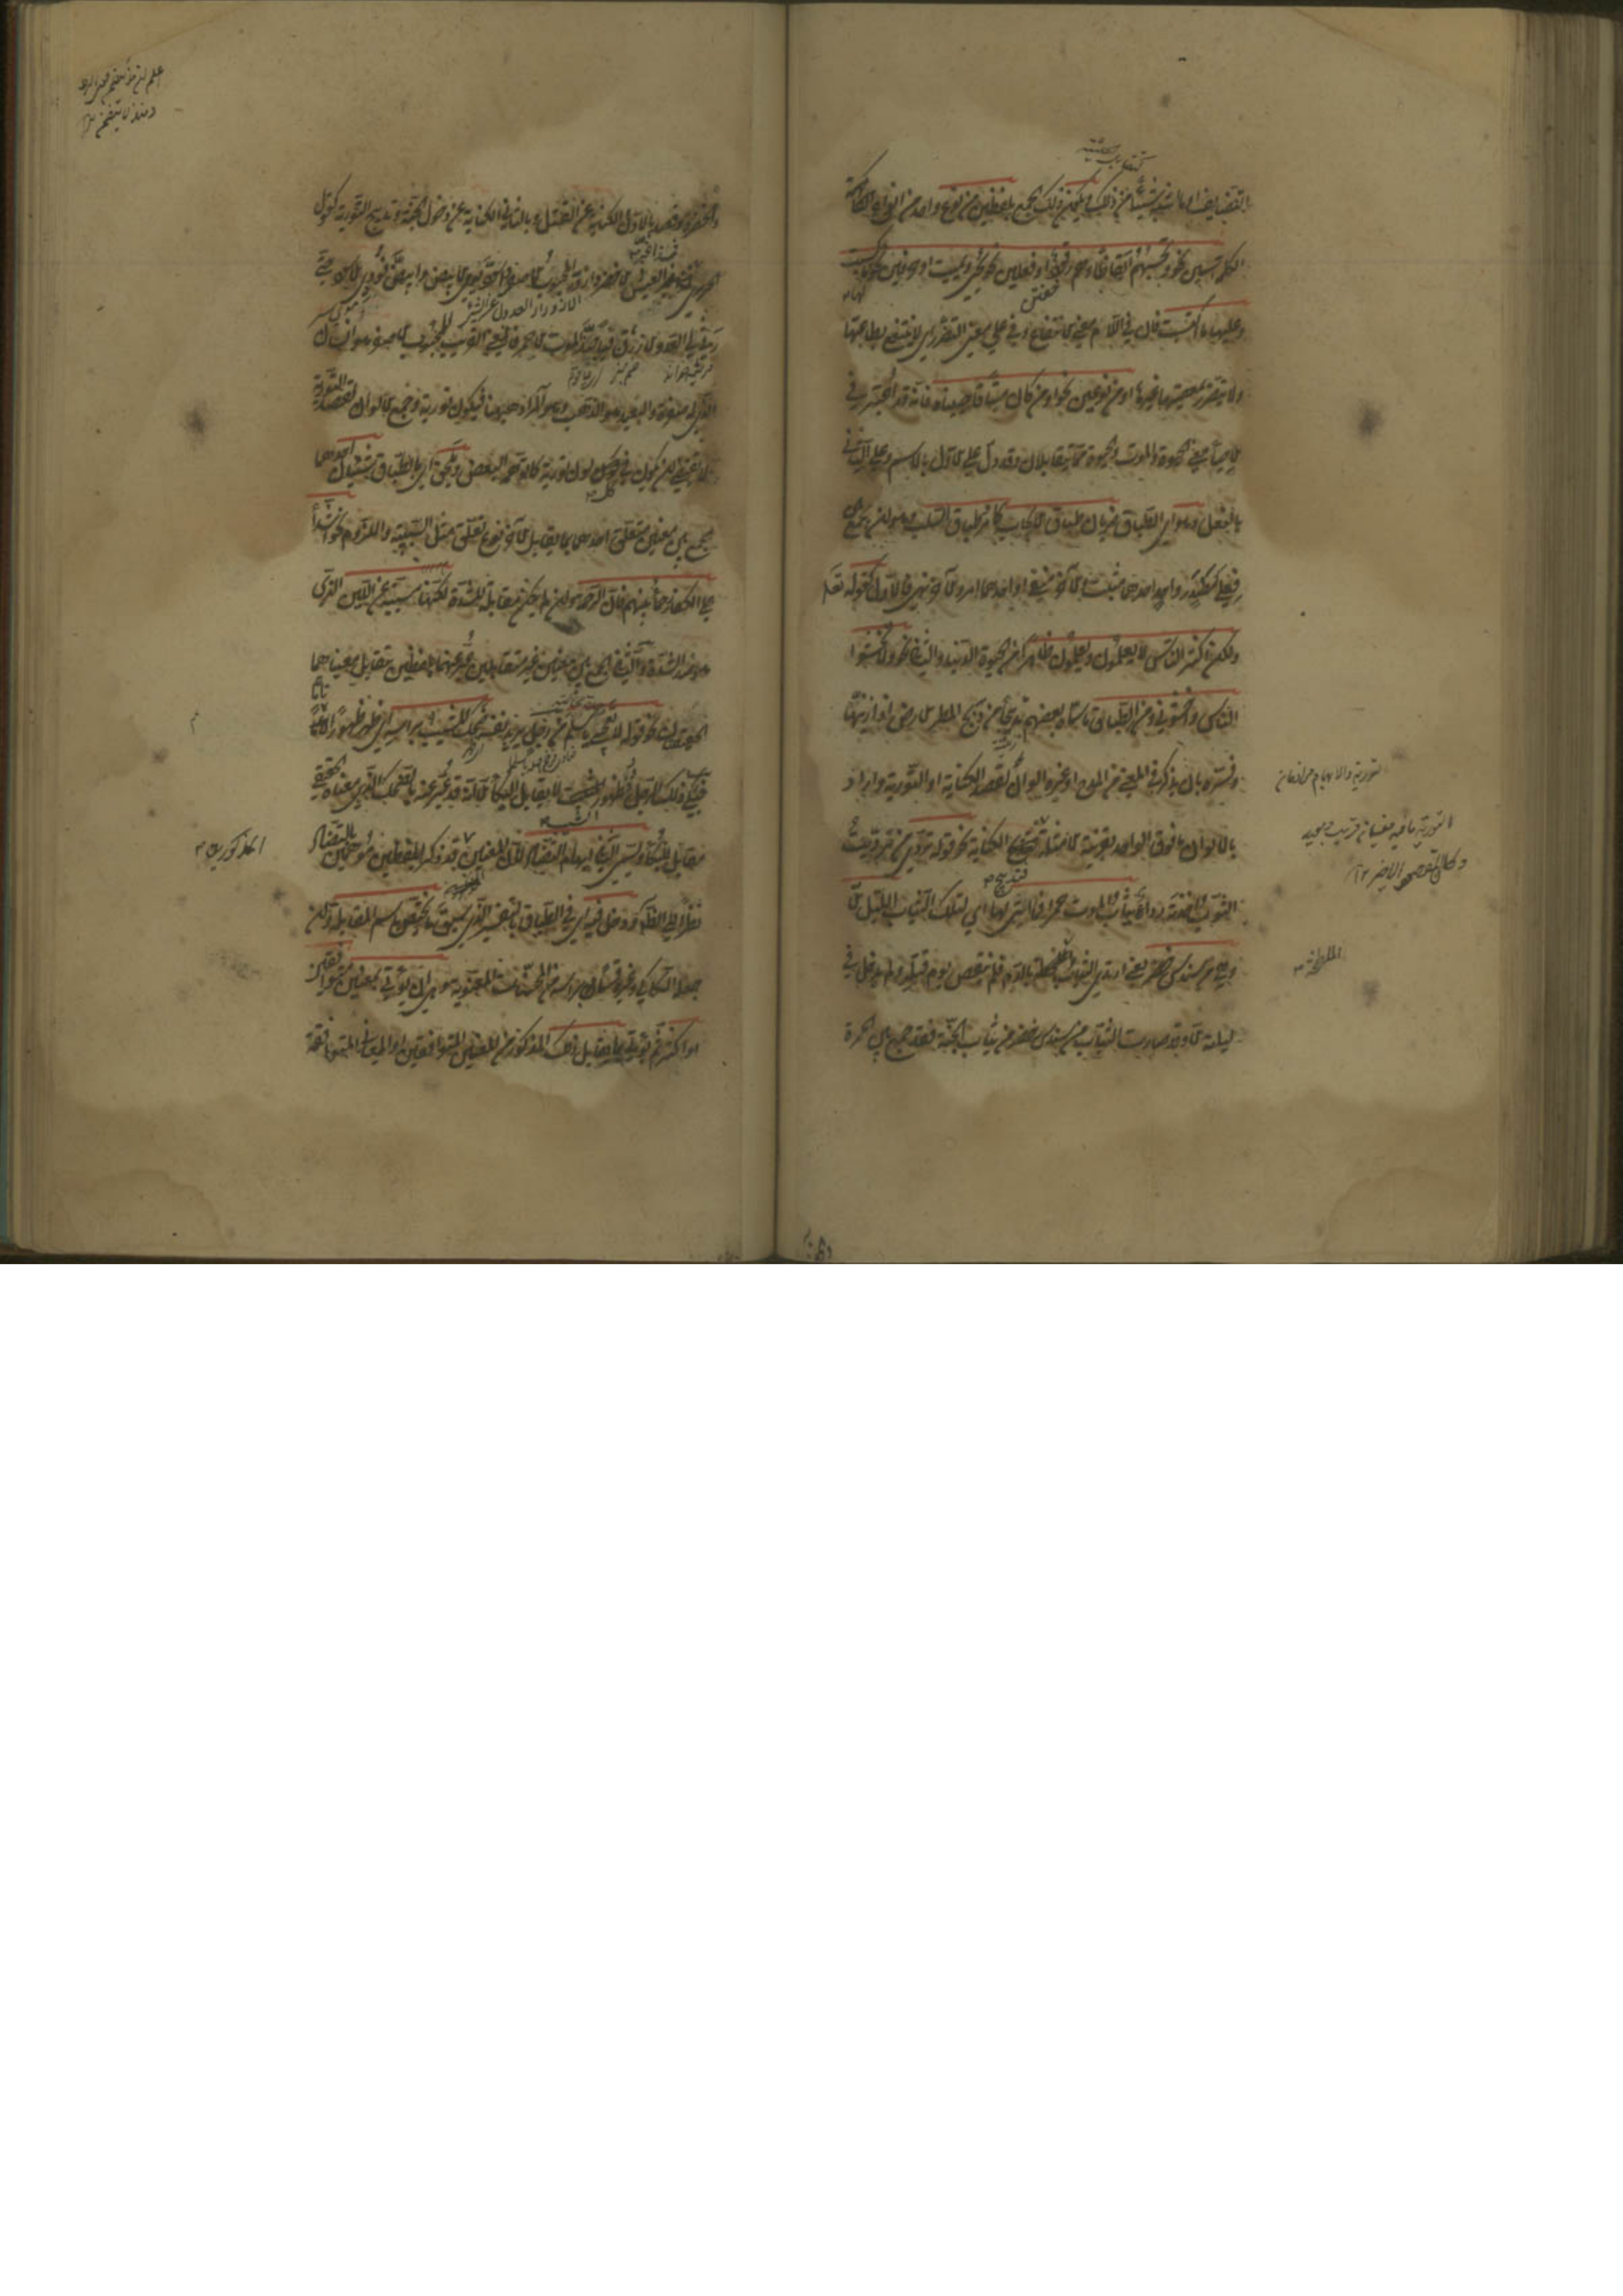 التضايف او ما يشبه شيئا من ذلك ويكون ذلك الجمع بلفظين من نوع واحد من انواع الكلمة
اسمين نحو وتحسبهم ايقاظا وهم رقود او فعلين نحو يحيى ويميت او حرفين نحو لها ما كسبت
وعليها ما اكتسبت فان في اللام معنى الانتفاع وفي على معنى التضرر اي لا ينتفع بطاعتها
ولا يتضرر بمعصيتها غيرها او من نوعين نحو او من كان ميتا فاحييناه فانه قد اعتبر في
الاحياء معنى الحيوة والموت والحيوة مما يتقابلان وقد دل على الاول بالاسم وعلى الثاني
بالفعل وهو اي الطباق ضربان طباق الايجاب كما مر وطباق السلب وهو ان يجمع بين
فعلي مصدر واحد احدهما مثبت والآخر منفي او احدهما امر والآخر نهي فالاول كقوله تعالى
ولكن اكثر الناس لا يعلمون يعلمون ظاهرا من الحيوة الدنيا والثاني نحو ولا تخشوا
الناس واخشوني ومن الطباق ما سماه بعضهم تدبيجا من دبج المطر الارض اذا زينها
وفسره بان يذكر في المعنى من المدح او غيره الوان لقصد الكناية او التورية واراد
بالالوان ما فوق الواحد بقرينة الامثلة فتدبيج الكناية نحو قوله تردى من ترديت
الثوب اخذته رداء ثياب الموت حمرا فما اتى لها اي لتلك الثياب الليل الا
وهي من سندس خضر يعني ارتدى الثياب الملطخة بالدم فلم ينقض يوم قتله ولم يدخل في
ليلته الا وقد صارت الثياب من سندس خضر من ثياب الجنة فقد جمع بين الحمرة
التورية والايهام مرادفان
التورية ما فيه معنيان قريب وبعيد
وكان المقصود
الملطخة
والخضرة وقصد بالاول الكناية عن القتل وبالثاني الكناية عن دخول الجنة وتدبيج التورية كقول
الحريري فمذ اغبر العيش الاخضر وازور المحبوب الاصفر اسود يومي الابيض وابيض فودي الاسود حتى
رثى لي العدو الازرق فيا حبذا الموت الاحمر فالمعنى القريب للمحبوب الاصفر هو انسان
الازورار العدول عن الشيء
له صفرة والبعيد هو الذهب وهو المراد ههنا فيكون تورية وجمع الالوان لقصد التورية
لا يقتضي ان يكون في كل لون تورية كما توهمه البعض ويلحق به اي بالطباق شيئان احدهما
الجمع بين معنيين يتعلق احدهما بما يقابل الآخر نوع تعلق مثل السببية واللزوم نحو اشداء
على الكفار رحماء بينهم فان الرحمة وان لم يكن مقابلة للشدة لكنها مسببة عن اللين الذي
هو ضد الشدة والثاني الجمع بين معنيين غير متقابلين عبر عنهما بلفظين يتقابل معناهما
الحقيقيان نحو قوله لا تعجبي يا سلم من رجل يريد نفسه ضحك المشيب براسه اي ظهر ظهورا تاما
فبكى ذلك الرجل فظهور المشيب لا يقابل البكاء الا انه قد عبر عنه بالضحك الذي معناه الحقيقي
مقابل للبكاء ويسمى الثاني ايهام التضاد لان المعنيين قد ذكر بلفظين يوهمان بالتضاد
المذكورين
نظرا الى الظاهر ودخل فيه اي في الطباق بالتفسير الذي سبق ما يختص باسم المقابلة وان
جعله السكاكي وغيره قسما براسه من المحسنات المعنوية وهو ان يؤتى بمعنيين متوافقين
او اكثر ثم يؤتى بما يقابل ذلك المذكور من المعنيين المتوافقين او المعاني المتوافقة